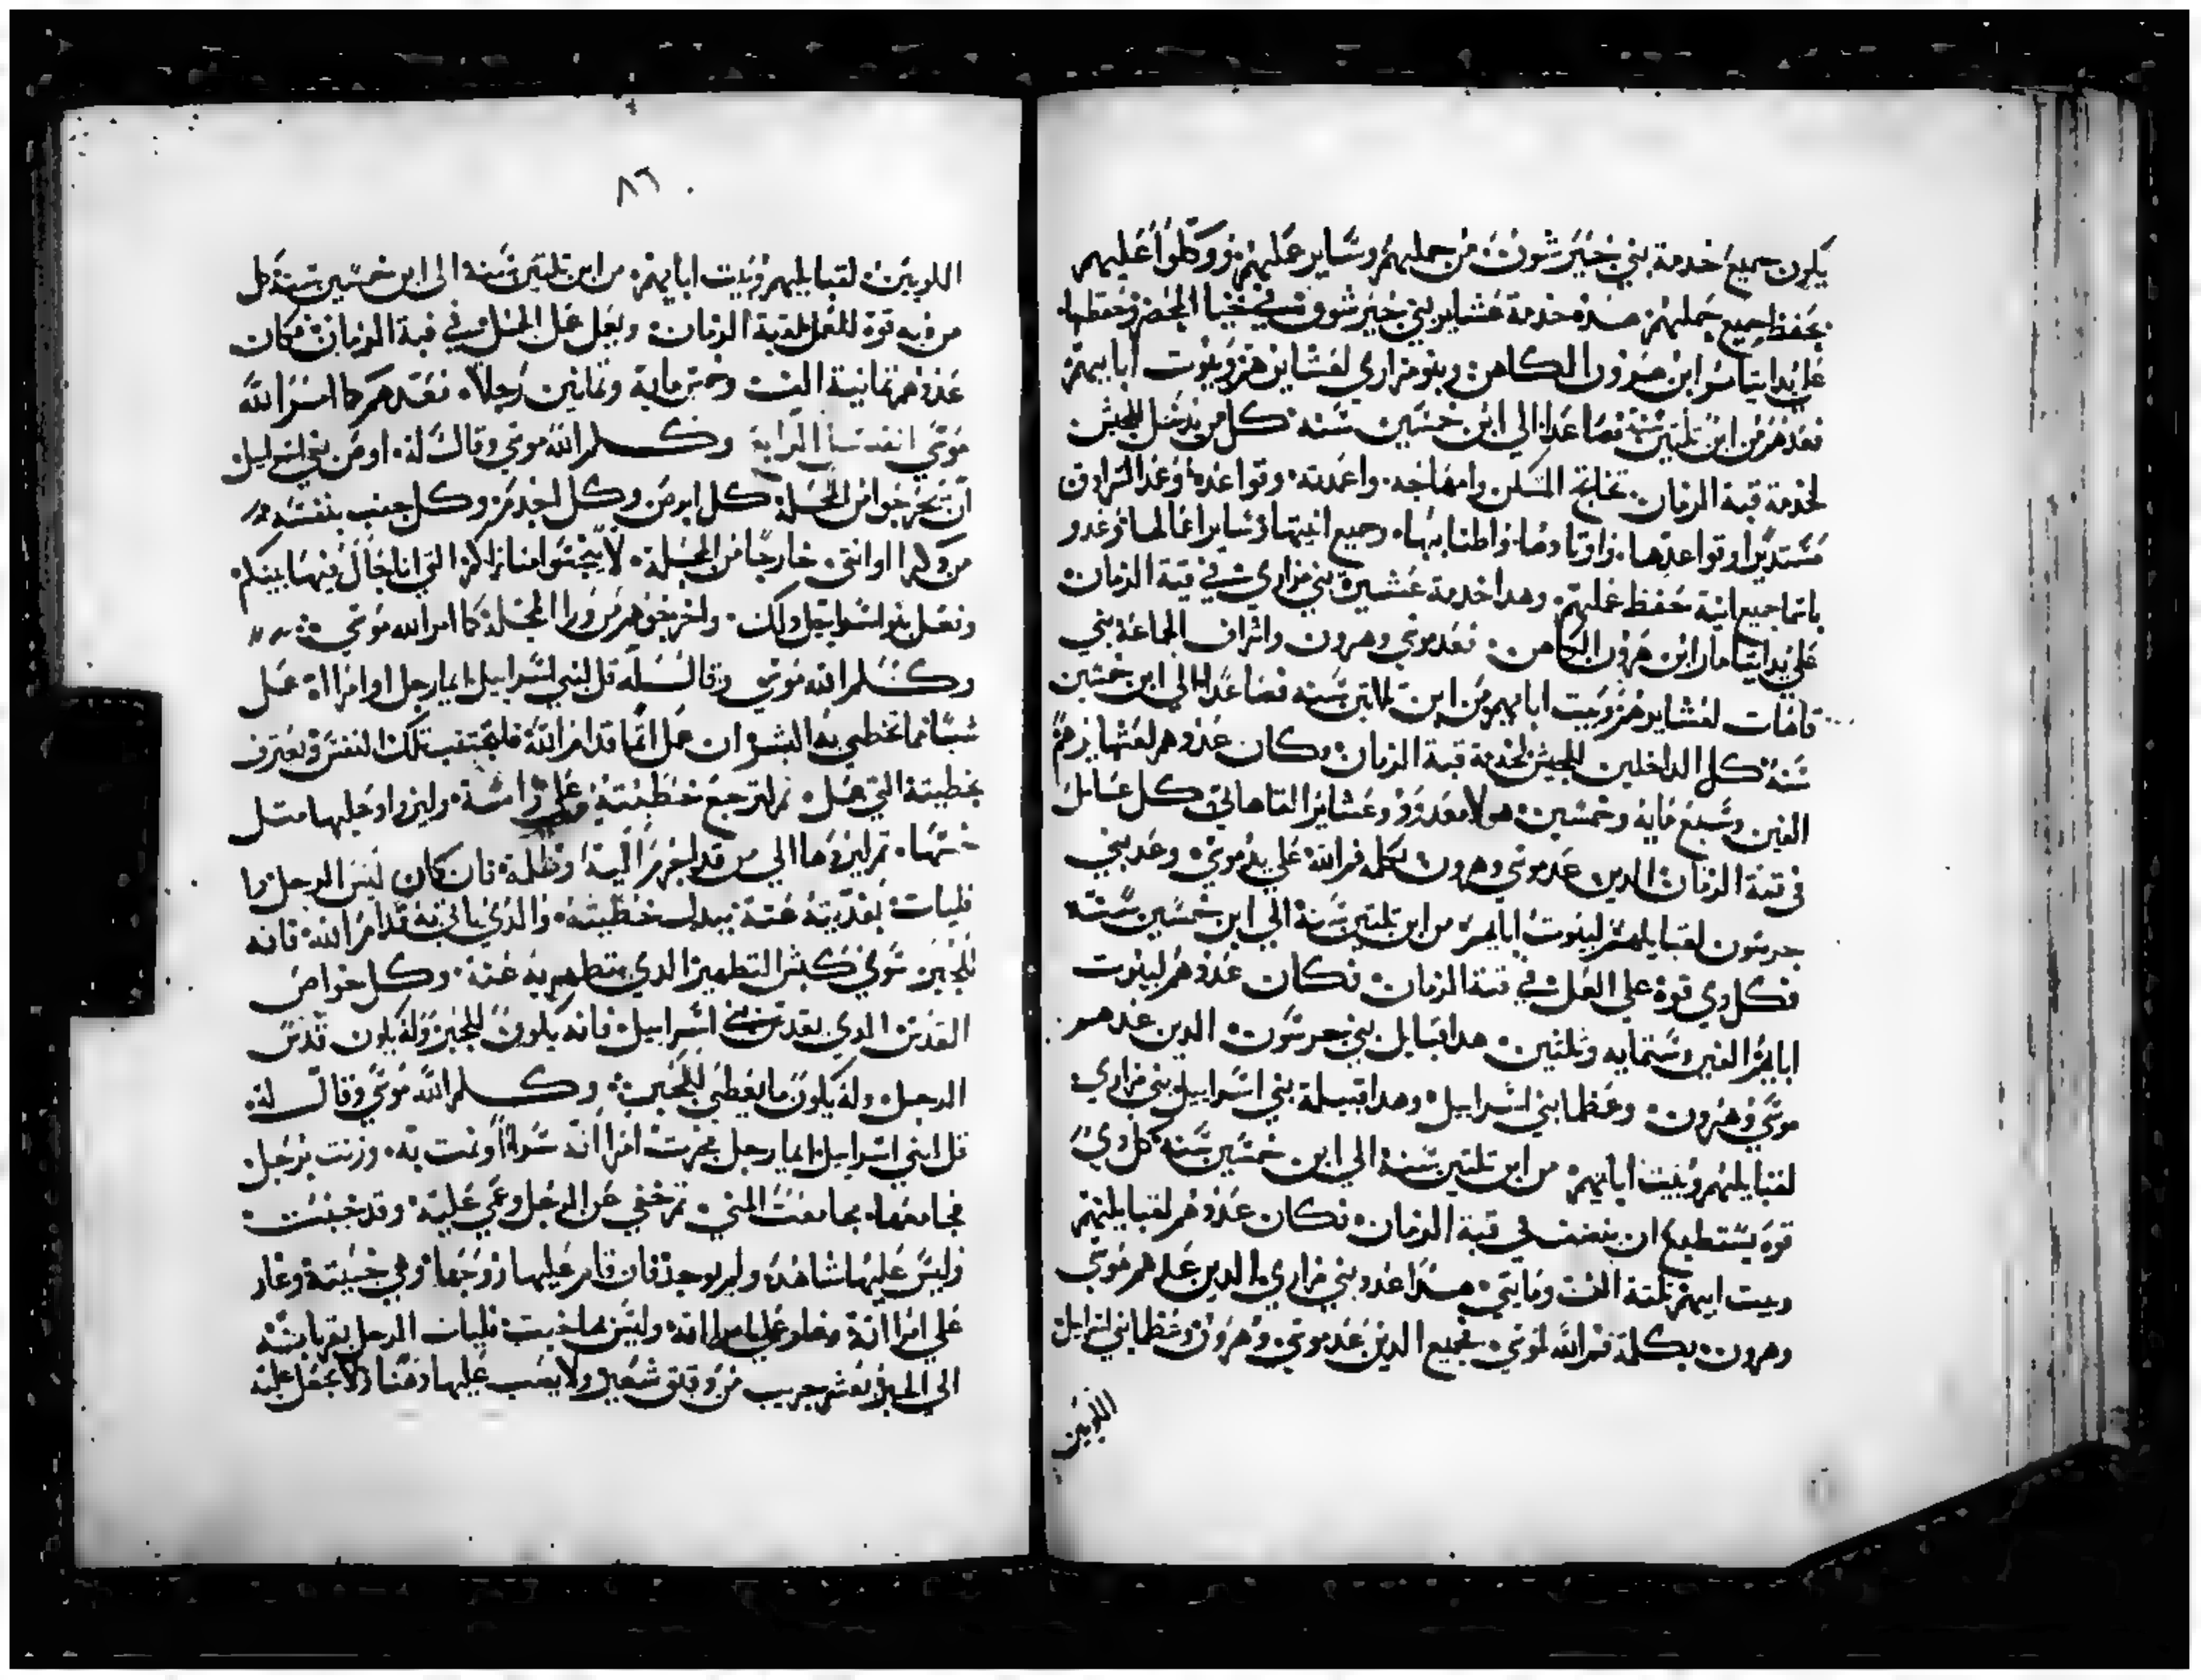 يكون جميع خدمة بني جيرشون من جملهم وساير عملهم ووكلوا عليهم
بحفظ جميع حملهم هذه خدمة عشاير بني جيرشون في خبا المحضر وحفظها
على يد ايتامر ابن هرون الكاهن وبنو مراري لعشايرهم وبيوت ابايهم
فعدهم من ابن تلتين سنة فصاعدا الي ابن خمسين سنه كل من يدخل للجيش
لخدمة قبة الزمان تخاتج المسكن وامهاجه واعمدته وقواعده وعمد السرادق
مستديرا وقواعدها واوتادها واطنابها وجميع انيتها وساير اعمالها وعدو
باسما جميع انية حفظ عليهم وهدا خدمة عشيرة بني مراري في قبة الزمان
على يد ايتامار ابن هرون الكاهن فعد موسي وهرون واشراف الجماعة بني
قاهات لعشايرهم وبيت ابايهم من ابن تلاتين سنه فصاعدا الي ابن خمسين
سنة كل الداخلين للجيش لخدمة قبة الزمان وكان عددهم لعشايرهم
الفين وسبع مايه وخمسين هولا معدودو عشاير القاهاتي كل عامل
في قبة الزمان الدين عد موسي وهرون بكلمة فم الله علي يد موسي وعد بني
جرشون لقبايلهم لبيوت ابايهم من ابن تلتين سنة الي ابن خمسين سنه
فكل دي قوة علي العمل في قبة الزمان فكان عددهم لبيوت
ابايهم الفين وستمايه وثلثين هدا قبايل بني جرشون الدين عدهم
موسي وهرون وعظما بني اسراييل وهدا قبيلة بني اسراييل بني مراري
لقبايلهم وبيت ابايهم من ابن تلتين سنة الي ابن خمسين سنة كل دي
قوة يستطيع ان ينهض في قبة الزمان فكان عددهم لقبايلهم
وبيت ابيهم تلتة الف ومايتي هدا عدد بني مراري الدين عدهم موسي
وهرون بكلمة فم الله لموسي فجميع الدين عد موسي وهرون وعظما بني اسراييل
اللويين
٨٦
اللويين لقبايلهم وبيت ابايهم من ابن تلتين سنة الى ابن خمسين سنة كل
من فيه قوة للعمل لقبة الزمان ويعمل عمل الحمل في قبة الزمان فكان
عددهم تمانية الف وخمس ماية وتمانين رجلا فعدهم كما امر الله
موسي الرابع وكلم الله موسي وقال له اومر بني اسراييل
ان يخرجوا من المحلة كل ابرص وكل اجدم وكل جنب بنفسه
من دكر او انتي خارجا من المحلة لا ينجسوا منازلكم التي انا حال فيها بينكم
وفعل بنو اسراييل دلك واخرجوهم من ورا المحلة كما امر الله موسي
وكلم الله موسي وقال له قل لبني اسراييل ايما رجل او امراة عمل
شيا مما تخطي به البشر ان عمل اتما قدام الله فلتعقب تلك النفس وتعترف
بخطيتة التي عمل تم لترجع خطيته علي راسة وليزداد عليها متل
خمسها تم ليردها الي من قد اجرم اليه وظلمة فان كان ليس الرجل ربا
فليات بفدية عنة ببدل خطيته والدي ياتي به قدام الله فانه
للحبر سوي كبش التطهير الدي يتطهر به عنة وكل خواص
القدس الدي يقدس بني اسراييل فانه يكون للحبر وله يكون قدس
الرجل وله يكون ما يعطي للحبر وكلم الله موسي وقال له
قل لبني اسراييل ايما رجل فجرت امراته سرا ونمت به وزنت برجل
فجامعها مجامعت المني تم خفي عن الرجل وعمي عليه وقد خبثت
وليس عليها شاهد ولم يوجد فان قام عليها زوجها وهي خبيتة وغار
علي امراتة وغار علي امراته وليس ما خبت فليات الرجل بامراته
الي الحبر بعشر جريب من دقيق شعير ولا يصب عليها دهنا ولا يجعل عليه